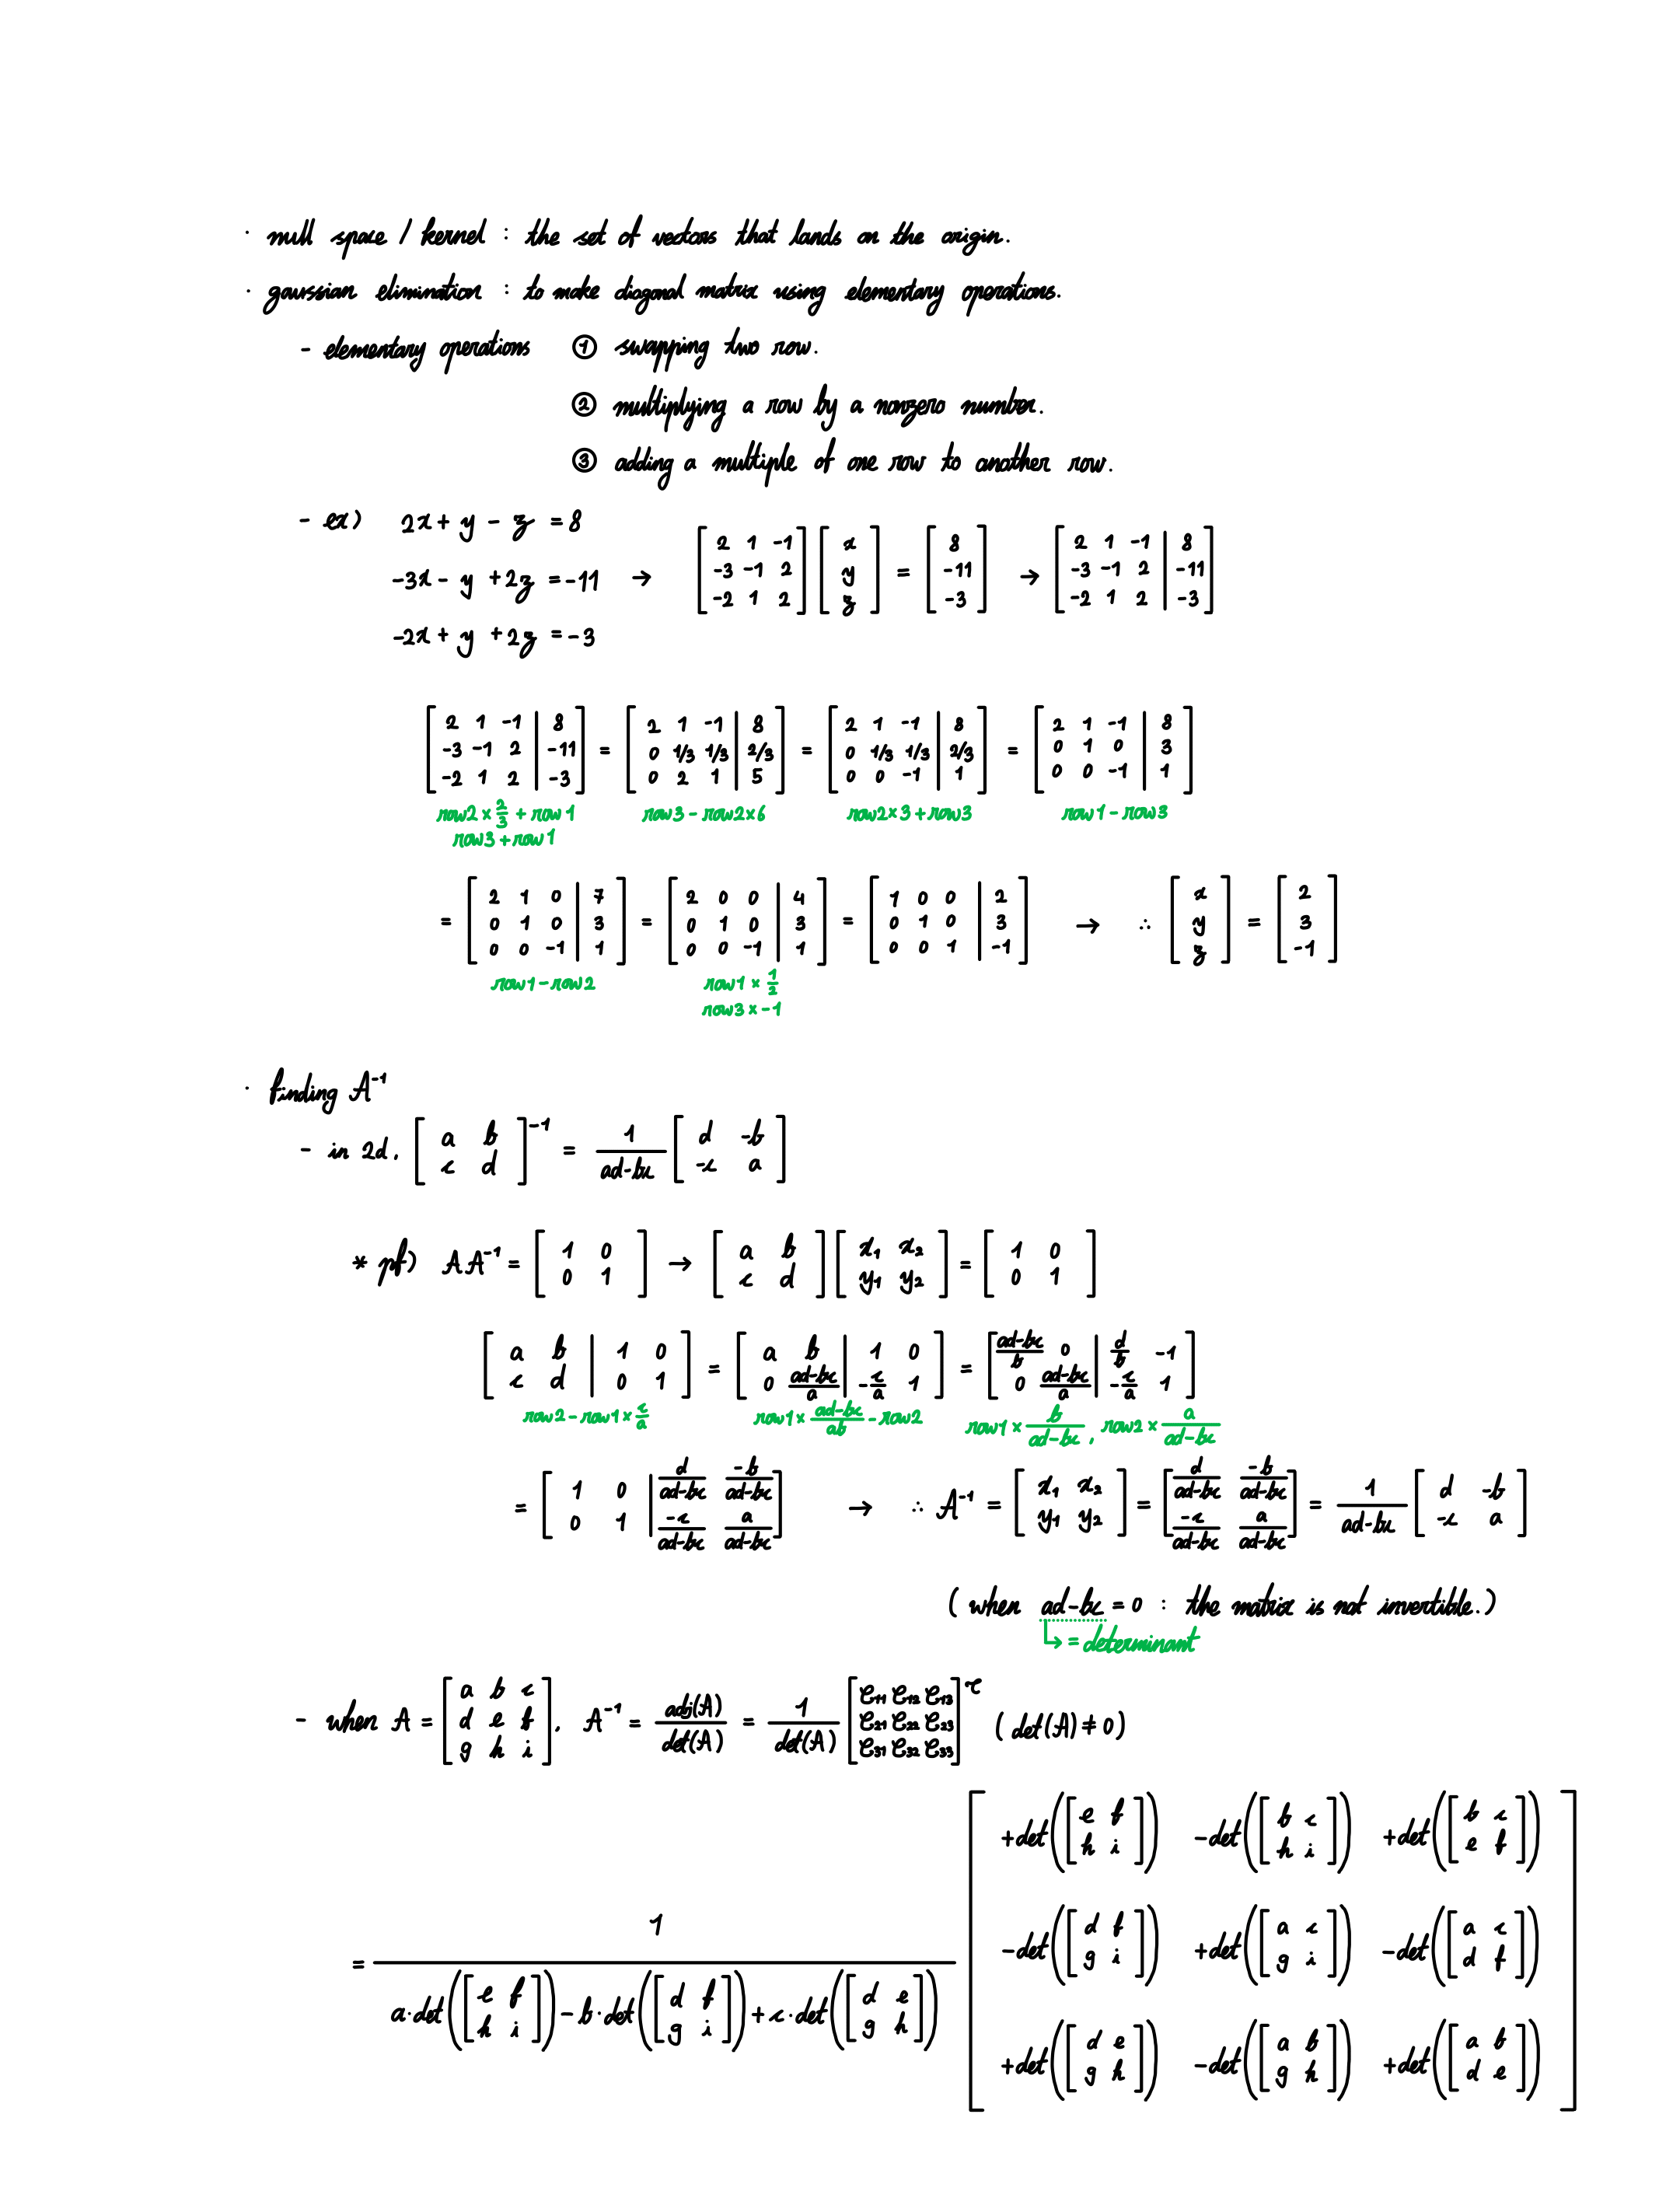 · null space / kernel : the set of vectors that lands on the origin.
· gaussian elimination : to make diagonal matrix using elementary operations.
- elementary operations ① swapping two row.
② multiplying a row by a nonzero number.
③ adding a multiple of one row to another row.
- ex) 2x + y - z = 8
-3x - y + 2z = -11 → [2 1 -1; -3 -1 2; -2 1 2] [x; y; z] = [8; -11; -3] → [2 1 -1 | 8; -3 -1 2 | -11; -2 1 2 | -3]
-2x + y + 2z = -3
[2 1 -1 | 8; -3 -1 2 | -11; -2 1 2 | -3] = [2 1 -1 | 8; 0 1/3 1/3 | 2/3; 0 2 1 | 5] = [2 1 -1 | 8; 0 1/3 1/3 | 2/3; 0 0 -1 | 1] = [2 1 -1 | 8; 0 1 0 | 3; 0 0 -1 | 1]
row2 × 2/3 + row1 row3 - row2×6 row2×3 + row3 row1 - row3
row3 + row1
= [2 1 0 | 7; 0 1 0 | 3; 0 0 -1 | 1] = [2 0 0 | 4; 0 1 0 | 3; 0 0 -1 | 1] = [1 0 0 | 2; 0 1 0 | 3; 0 0 1 | -1] → ∴ [x; y; z] = [2; 3; -1]
row1 - row2 row1 × 1/2
row3 × -1
· finding A⁻¹
- in 2d, [a b; c d]⁻¹ = 1/(ad-bc) [d -b; -c a]
* pf) AA⁻¹ = [1 0; 0 1] → [a b; c d] [x₁ x₂; y₁ y₂] = [1 0; 0 1]
[a b | 1 0; c d | 0 1] = [a b | 1 0; 0 (ad-bc)/a | -c/a 1] = [(ad-bc)/b 0 | d/b -1; 0 (ad-bc)/a | -c/a 1]
row2 - row1 × c/a row1 × (ad-bc)/ab - row2 row1 × b/(ad-bc), row2 × a/(ad-bc)
= [1 0 | d/(ad-bc) -b/(ad-bc); 0 1 | -c/(ad-bc) a/(ad-bc)] → ∴ A⁻¹ = [x₁ x₂; y₁ y₂] = [d/(ad-bc) -b/(ad-bc); -c/(ad-bc) a/(ad-bc)] = 1/(ad-bc) [d -b; -c a]
( when ad-bc = 0 : the matrix is not invertible.)
↳ = determinant
- when A = [a b c; d e f; g h i], A⁻¹ = adj(A)/det(A) = 1/det(A) [C₁₁ C₁₂ C₁₃; C₂₁ C₂₂ C₂₃; C₃₁ C₃₂ C₃₃]ᵀ ( det(A) ≠ 0 )
= 1/(a·det([e f; h i]) - b·det([d f; g i]) + c·det([d e; g h])) [+det([e f; h i]) -det([b c; h i]) +det([b c; e f]); -det([d f; g i]) +det([a c; g i]) -det([a c; d f]); +det([d e; g h]) -det([a b; g h]) +det([a b; d e])]